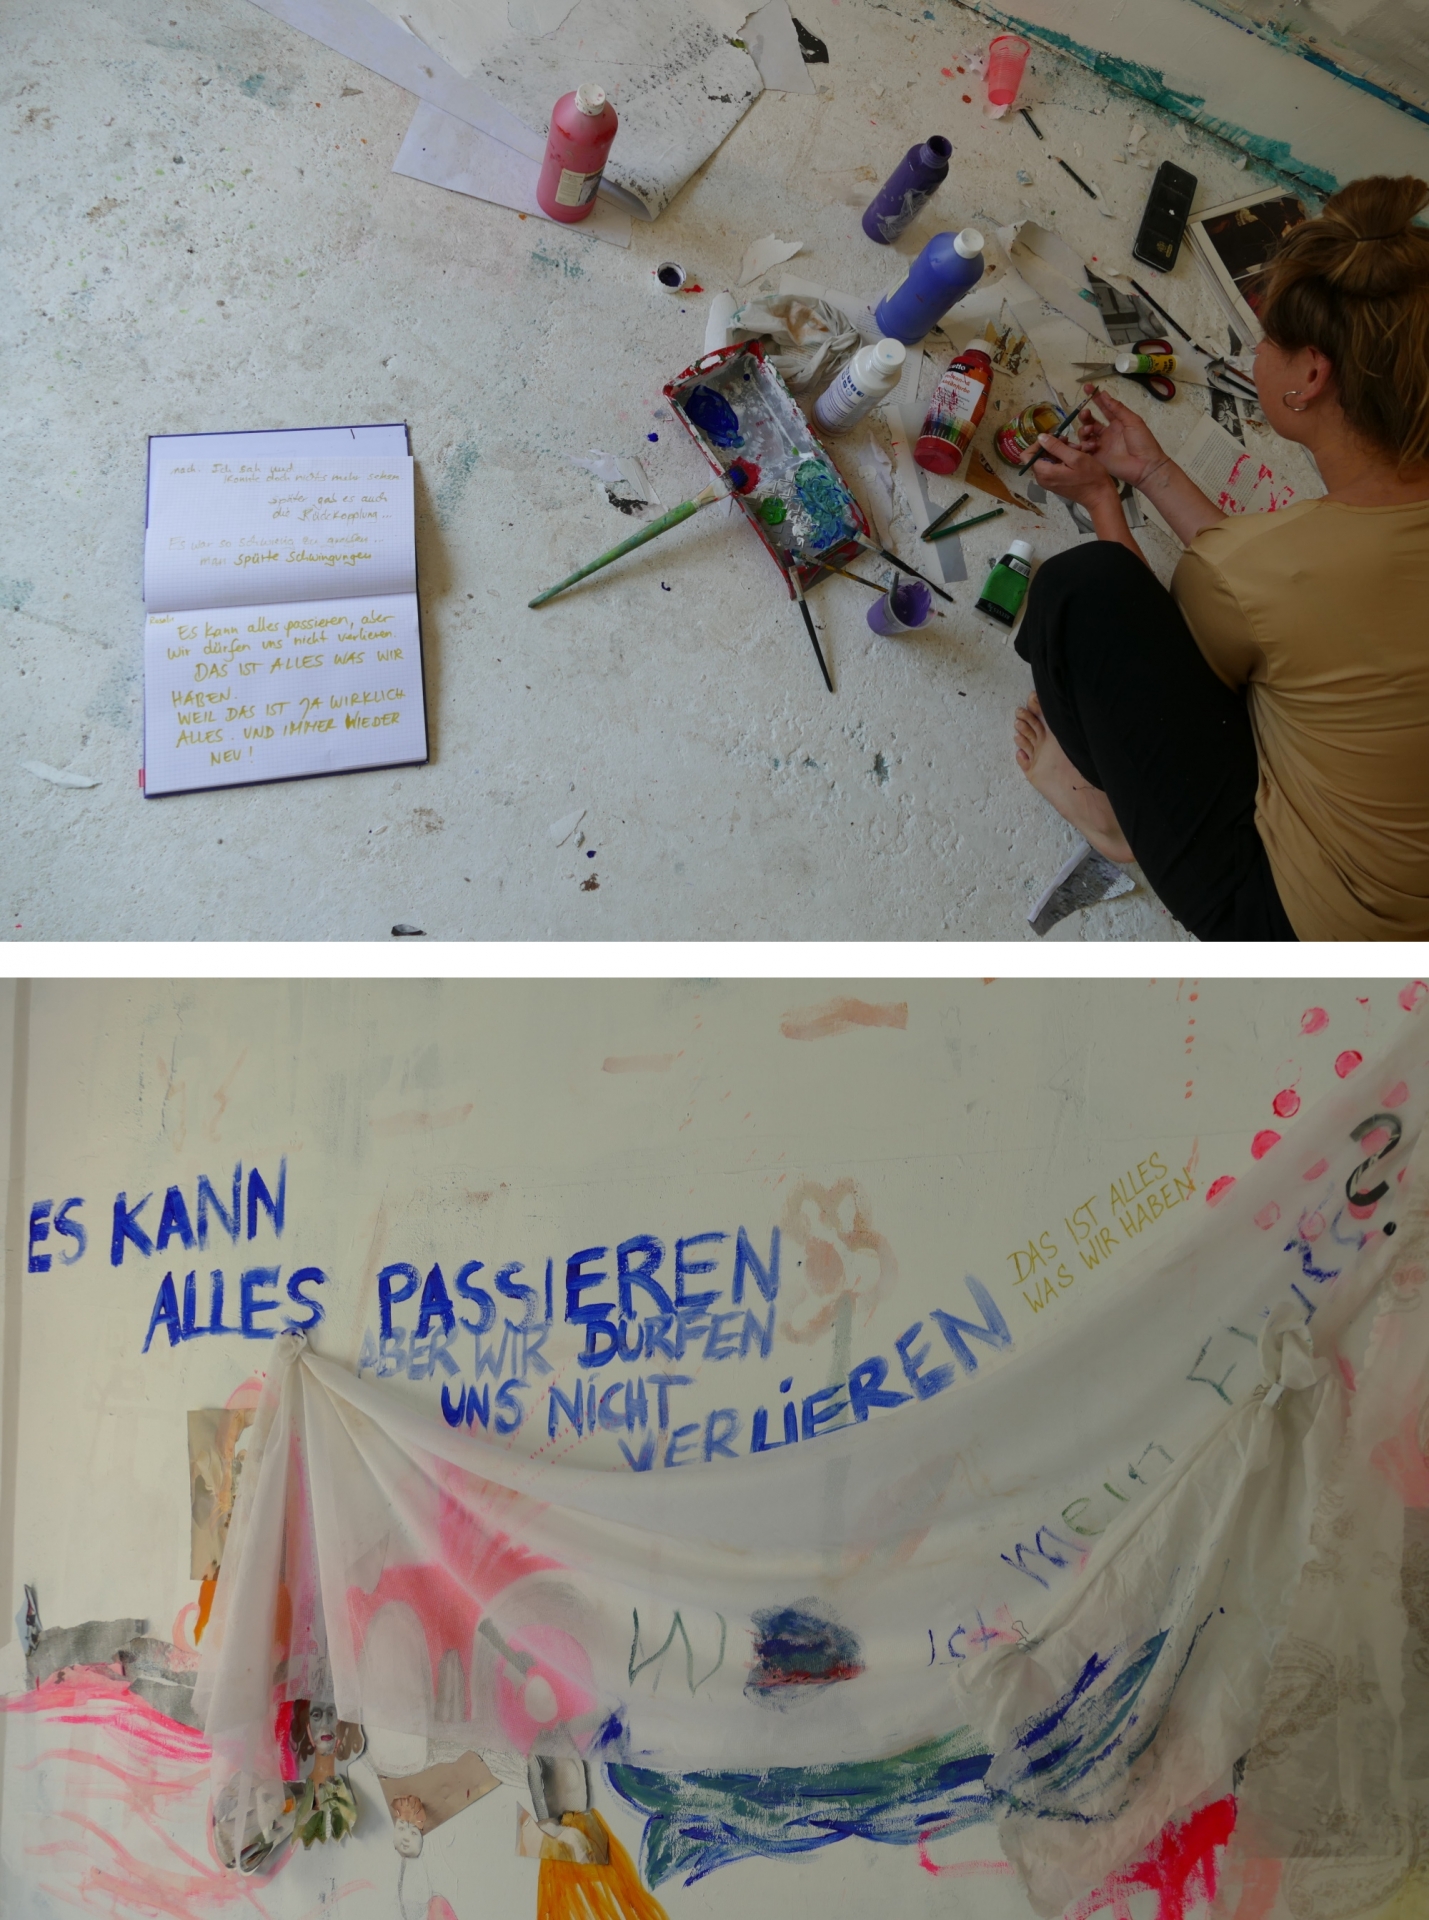 nach. Ich sah und
konnte doch nichts mehr sehen
später gab es auch
die Rückkopplung...
Es war so schwierig zu greifen...
man spürte Schwingungen
Es kann alles passieren, aber
wir dürfen uns nicht verlieren.
DAS IST ALLES WAS WIR
HABEN.
WEIL DAS IST JA WIRKLICH
ALLES. UND IMMER WIEDER
NEU!
ES KANN
ALLES PASSIEREN
ABER WIR DÜRFEN
UNS NICHT
VERLIEREN
DAS IST ALLES
WAS WIR HABEN
WO
IST
MEIN
?